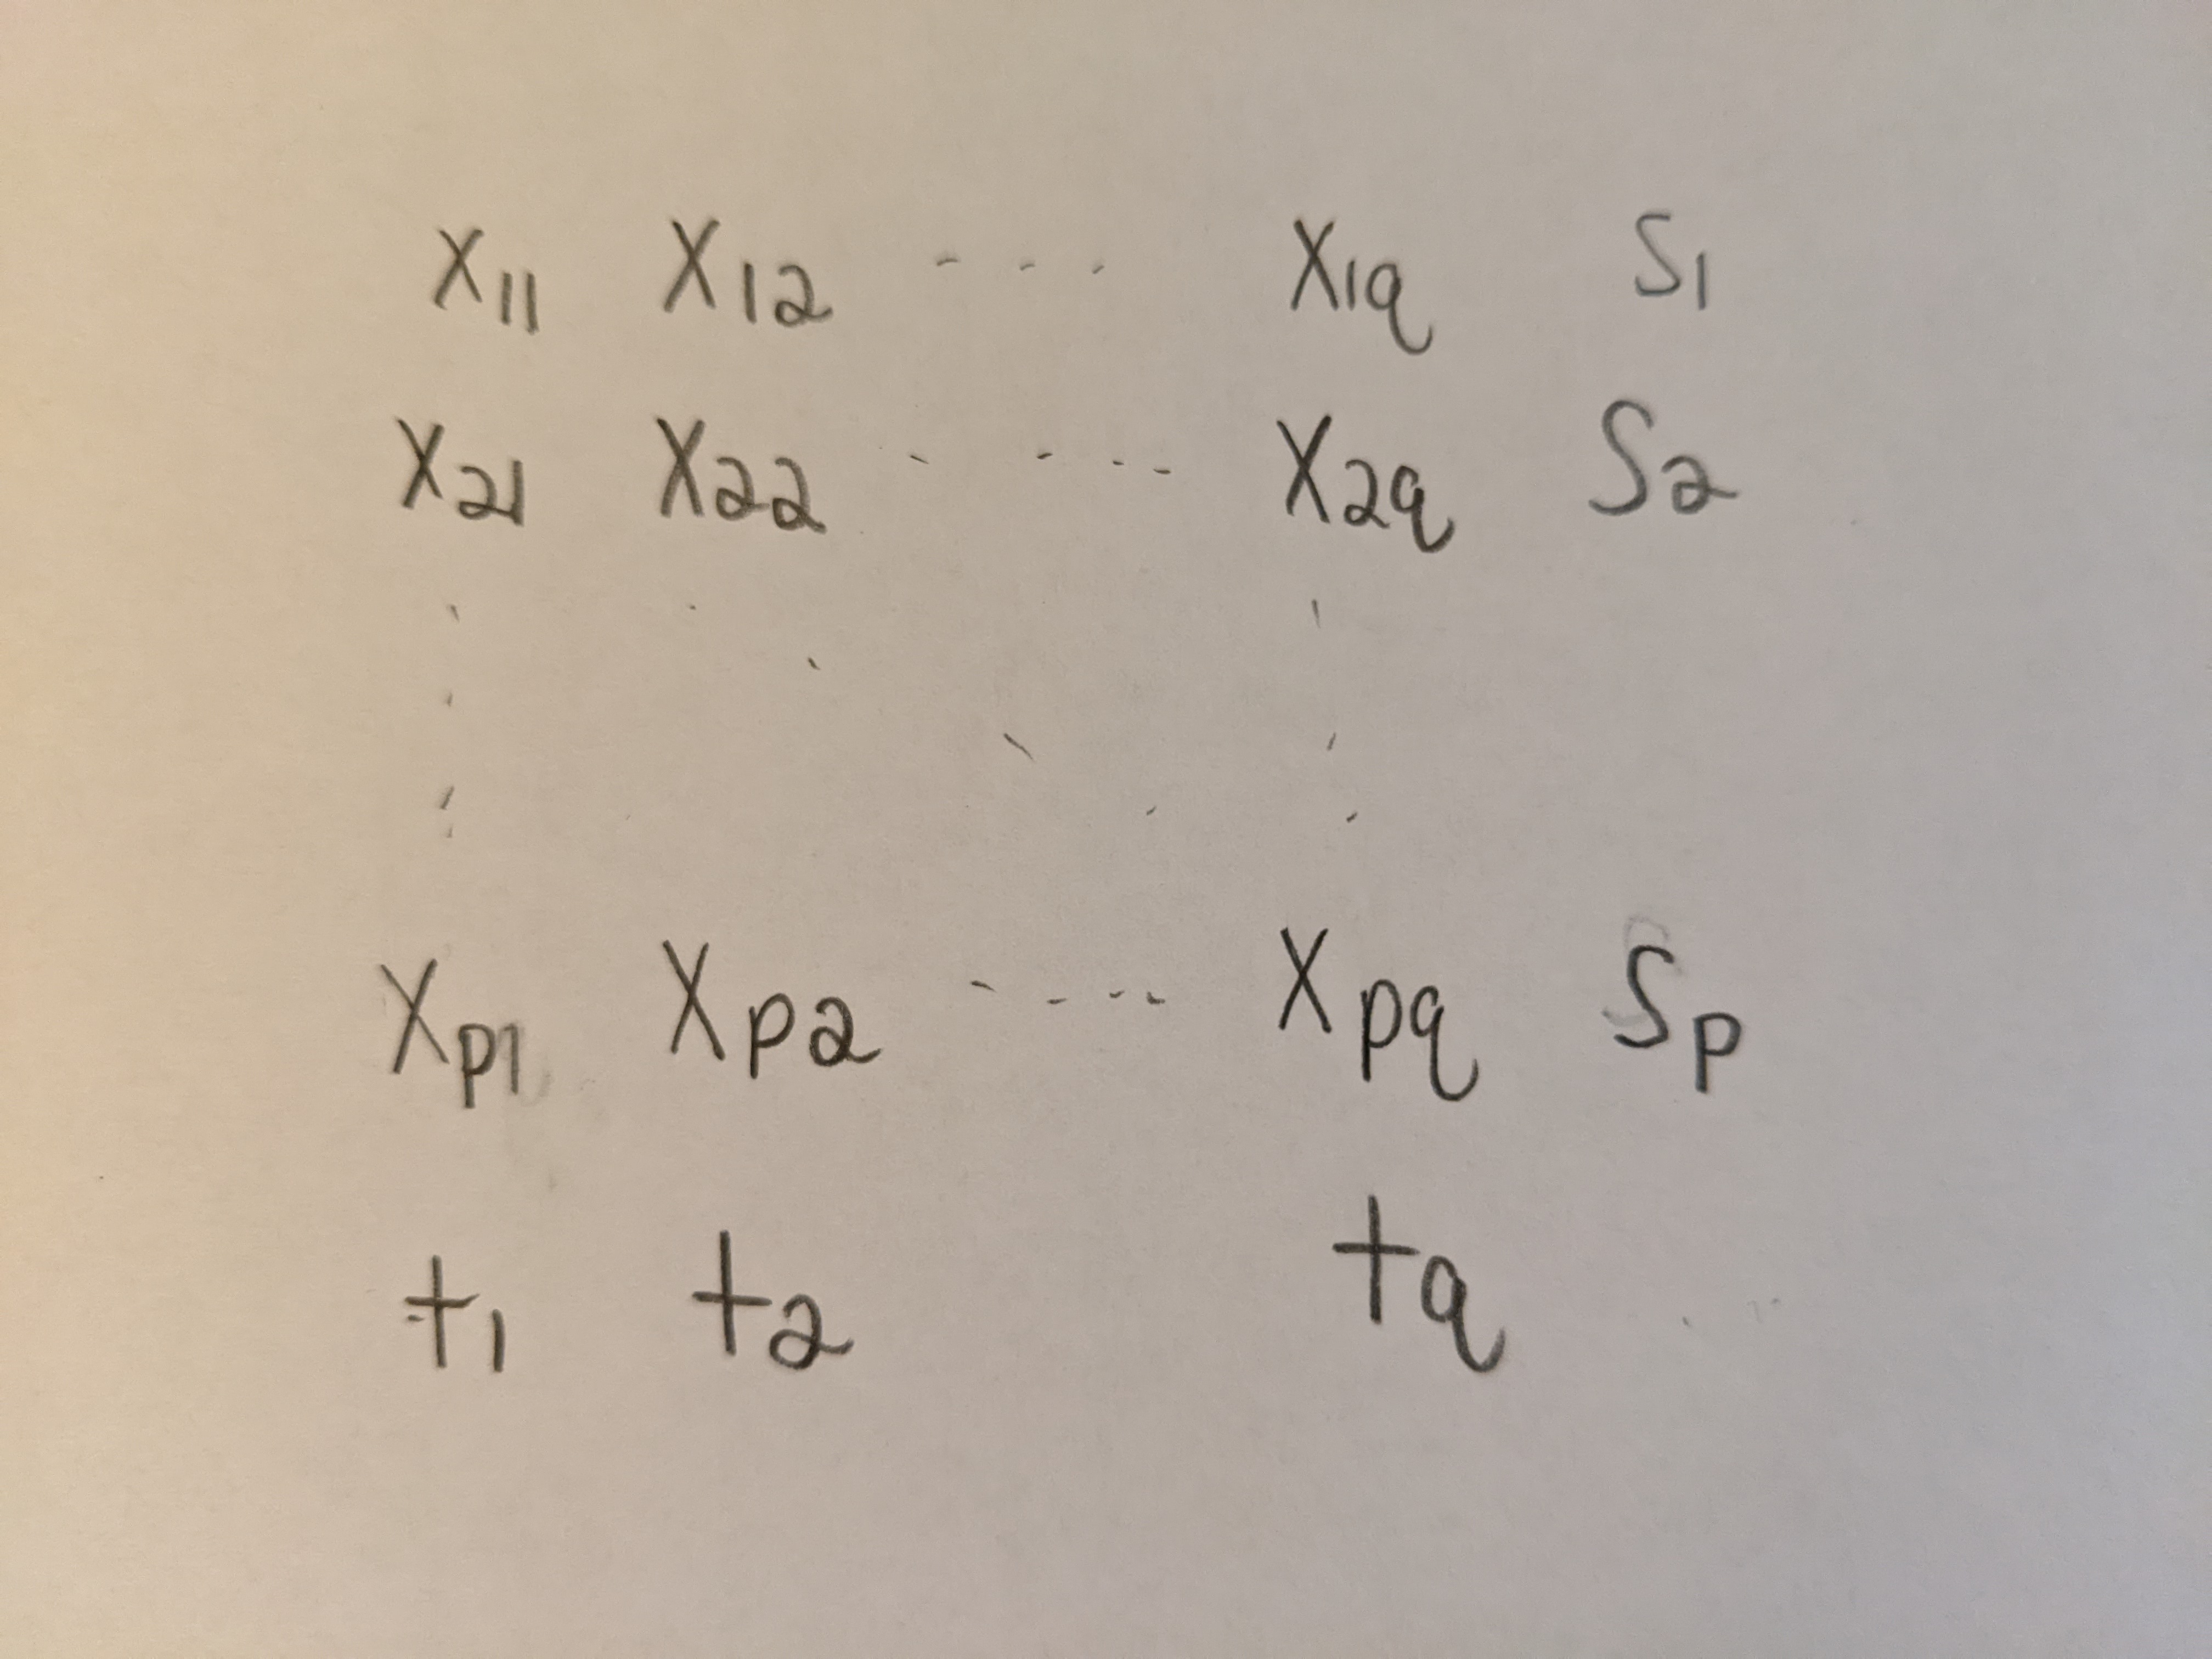 x11 x12 - - - x1q s1
x21 x22 - - - - x2q s2
xp1 xp2 - - - - xpq sp
t1 t2 tq